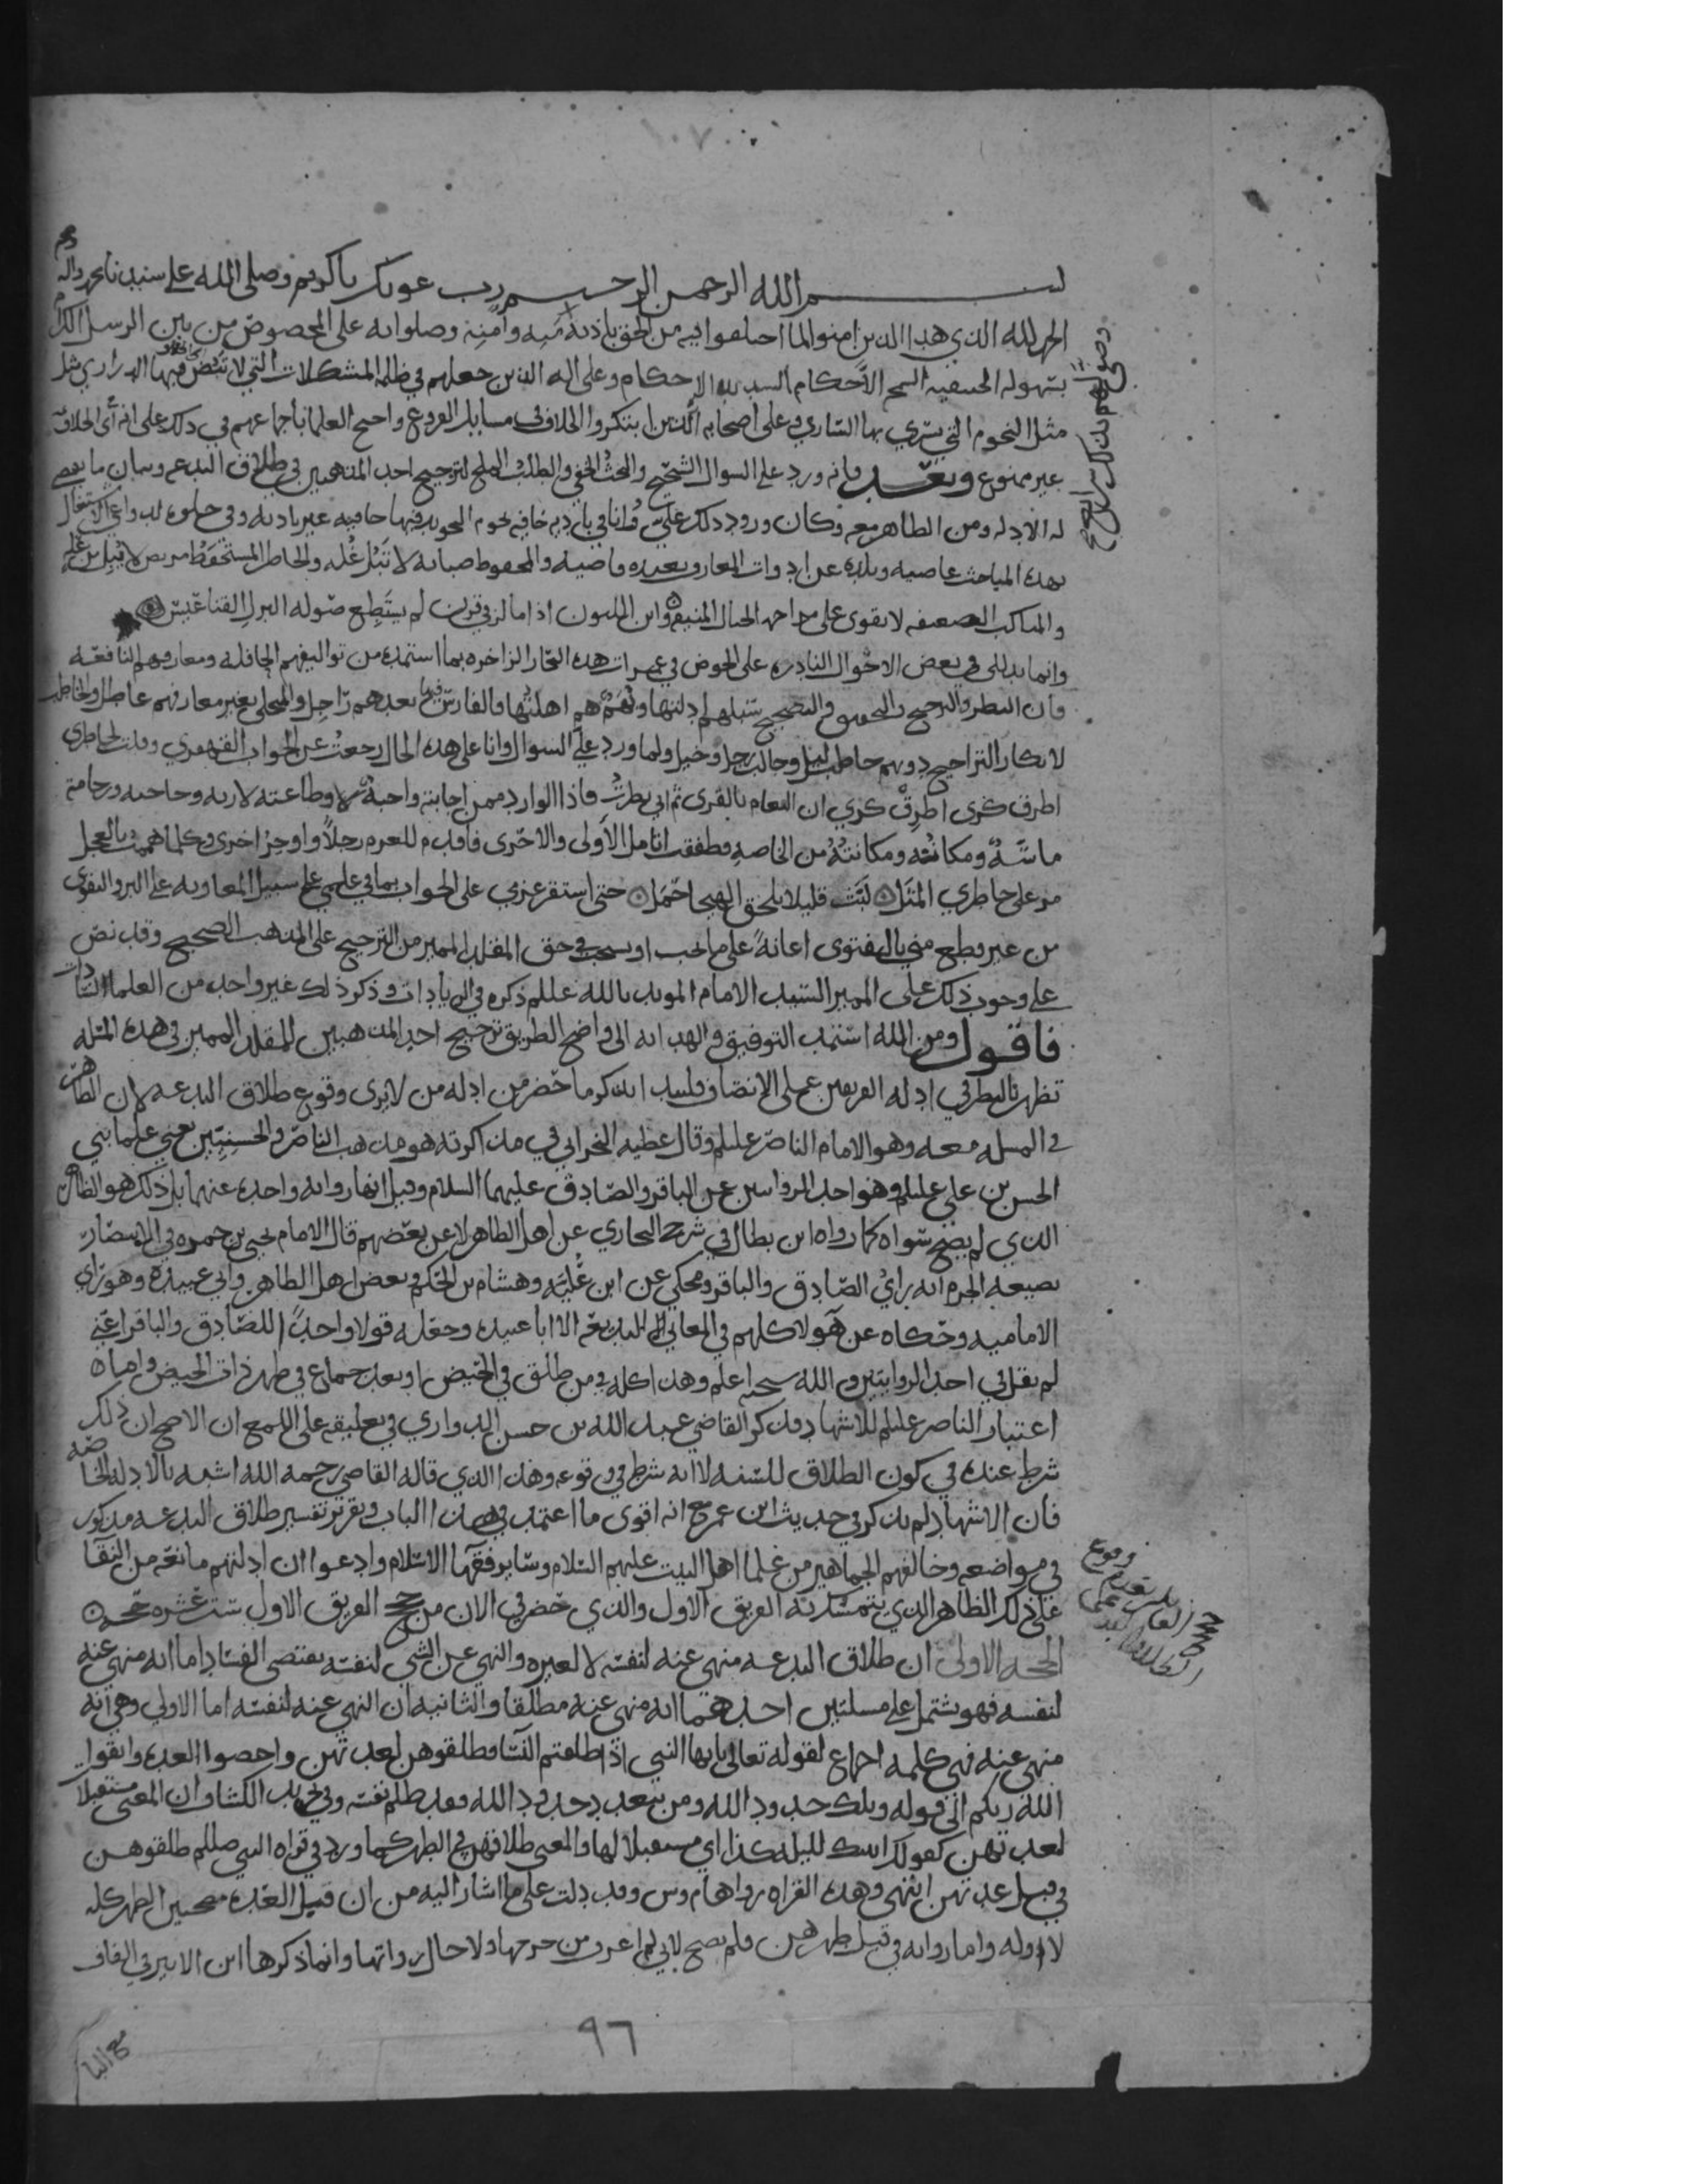 ١٠٧
بسم الله الرحمن الرحيم رب عونك يا كريم وصلى الله على سيدنا محمد واله
الحمد لله الذي هدا الذين امنوا لما اختلفوا فيه من الحق باذنه وصلواته على المخصوص من بين الرسل الكرام
بسهوله الحنيفيه السمح الاحكام وعلى اله الذين جعلهم في ظلم المشكلات التي لا فيها الدراري مثل
مثل النجوم التي يسري بها الساري وعلى اصحابه الذين ابتكروا الخلاف في مسايل الفروع واحتج العلما باجماعهم في ذلك على انه الخلاف
غير ممنوع وبعد فانه ورد علي السوال والبحث الحفي والطلب الملح لترجيح احد المذهبين في طلاق البدعه وبيان ما يقضي
له الادله ومن الظاهر معه وكان ورود ذلك علي وانا في باديه خافيه نجوم فيها خافيه غير باديه وفي
بهذه المباحث عاصيه وبلده عن ادوات المعارف بعيده قاصيه والمحفوظ صبابه لا تبل غله والخاطر المستحفظ مريض لا يبل من عله
والمناكب الضعيفه لا تقوى على مزاحمه الجبال المنيفه وابن اللبون اذا ما لز في قرن لم يستطع صوله البزل القناعيس
وانما في بعض الاحوال النادره على الخوض في غمرات هذه البحار الزاخره بما استمده من تواليفهم الحافله ومعارفهم النافعه
فان النظر والترجيح والتصحيح سبلهم ادلتها وهم هم اهلتها فالفارس فيها بعدهم راجل والمتحلي بغير معارفهم عاطل والخاطب
لابكار التراجيح دونهم حاطب ليل وجالب رجل وخيل ولما ورد علي السوال وانا على هذه الحال رجعت عن الجواب القهقرى وقلت لخاطري
اطرق كرى اطرق كرى ان النعام بالقرى ثم اني نظرت فاذا الوارد ممن اجابته واجبه وطاعته لازبه
ماسه ومكانته ومكانته من الخاصه فطفقت اتامل الاولى والاحرى فاقدم للعزم رجلا واوخر اخرى وكلما هممت بالعجل
مر على خاطري المثل لبث قليلا يلحق الهيجا حمل حتى استقر عزمي على الجواب بما في علمي على سبيل المعاونه على البر والتقوى
من غير قطع مني بالفتوى اعانة على ما يجب او يستحب في حق المقلد المميز من الترجيح على المذهب الصحيح وقد نص
على وجوب ذلك على المميز السيد الامام المويد بالله عليلم ذكره في الزيادات وذكر ذلك غير واحد من العلما السادات
فاقول ومن الله استمد التوفيق والهدايه الى واضح الطريق ترجيح احد المذهبين للمقلد المميز في هذه المسله
تظهر بالنظر في ادله الفريقين على الانصاف فلنبدا بذكر ما حضر من ادله من لا يرى وقوع طلاق البدعه لان الظاهر
في المسله معه وهو الامام الناصر عليلم وقال عطيه النجراني في مذاكرته هو مذهب الناصر والحسنيين يعني علما بني
الحسن بن علي عليلم وهو احد الروايتين عن الباقر والصادق عليهما السلام وقيل انها روايه واحده عنهما بل ذلك هو الظاهر
الذي لم يصح سواه كما رواه ابن بطال في شرح البخاري عن اهل الظاهر لا عن بعضهم قال الامام يحيى بن حمزه في الانتصار
بصيغه الجزم انه راي الصادق والباقر ومحكي عن ابن عليه وهشام بن الحكم وبعض اهل الظاهر وابي عبيده وهو راي
الاماميه وحكاه عن هولا كلهم في المعاني البديعه الا ابا عبيده وجعله قولا واحدا للصادق والباقر اعني
لم يقل في احد الروايتين والله سبحنه اعلم وهذا كله في من طلق في الحيض او بعد جماع في طهر ذات الحيض واما
اعتبار الناصر عليلم للاشهاد فذكر القاضي عبد الله بن حسن الدواري في تعليقه على اللمع ان الاصح ان ذلك
شرط عنده في كون الطلاق للسنه لا انه شرط في وقوعه وهذا الذي قاله القاضي رحمه الله اشبه بالادله الخاصه
فان الاشهاد لم يذكر في حديث ابن عمر مع انه اقوى ما اعتمد في هذا الباب وتقرير تفسير طلاق البدعه مذكور
في مواضعه وخالفهم الجماهير من علما اهل البيت عليهم السلام وساير فقها الاسلام وادعوا ان ادلتهم مانعه من البقا
على ذلك الظاهر الذي يتمسك به الفريق الاول والذي حضرني الان من حجج الفريق الاول ست عشره حجه
الحجه الاولى ان طلاق البدعه منهي عنه لنفسه لا لغيره والنهي عن الشي لنفسه يقتضي الفساد اما انه منهي عنه
لنفسه فهو يشتمل على مسلتين احدهما انه منهي عنه مطلقا والثانيه ان النهي عنه لنفسه اما الاولى وهي انه
منهي عنه فهي كلمه اجماع لقوله تعالى يايها النبي اذا طلقتم النسا فطلقوهن لعدتهن واحصوا العده واتقوا
الله ربكم الى قوله وتلك حدود الله ومن يتعد حدود الله فقد ظلم نفسه وفي الكشاف ان المعنى مستقبلا
لعدتهن كقولك اتيتك لليله كذا اي مستقبلا لها والمعنى طلاقهن في الطهر كما ورد في قراه النبي صللم طلقوهن
في قبل عدتهن انتهى وهذه القراه رواها م وس وقد دلت على ما اشار اليه من ان قبل العده الطهر كله
لا اوله واما روايه في قبل طهرهن فلم يصح لاني لم اعرف من خرجها ولا حال رواتها وانما ذكرها ابن الاثير في
٩٦